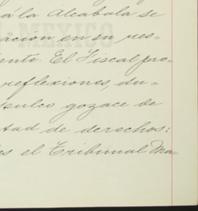 á la Alcabala se
acion en su res-
ento El Fiscal pro-
reflexiones, du-
sulos gozace de
tad de derechos:
es el Tribunal Ma-